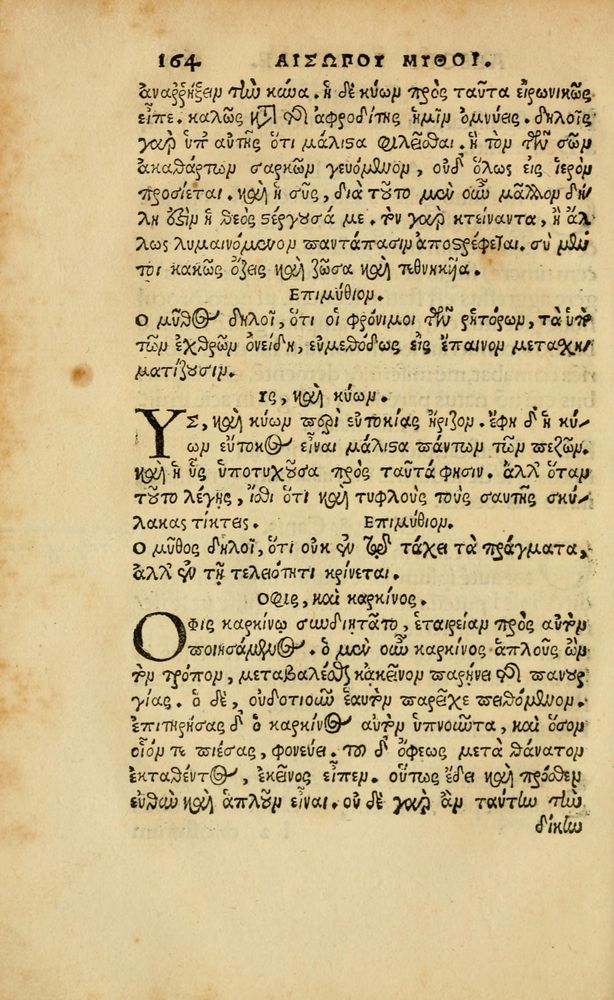 164 ΑΙΣΩΠΟΥ ΜΥΘΟΙ.
ἀναῤῥήξειν τὴν κύνα. ἡ δὲ κύων πρὸς ταῦτα εἰρωνικῶς
εἶπε. καλῶς κατὰ τῆς ἀφροδίτης ἡμῖν ὀμνύεις. δηλοῖς
γὰρ ὑπ' αὐτῆς ὅτι μάλιστα φιλεῖσθαι. ἣ τὸν τῶν σῶν
ἀκαθάρτων σαρκῶν γευόμενον, οὐδ' ὅλως εἰς ἱερὸν
προσίεται. καὶ ἡ σῦς, διὰ τοῦτο μὲν οὖν μᾶλλον δή-
λη ἐστὶν ἡ θεὸς στέργουσά με. τὸν γὰρ κτείναντα, ἢ ἄλ
λως λυμαινόμενον παντάπασιν ἀποστρέφεται. σὺ μέν
τοι κακῶς ὄζεις καὶ ζῶσα καὶ τεθνηκυῖα.
Επιμύθιον.
Ο μῦθος δηλοῖ, ὅτι οἱ φρόνιμοι τῶν ῥητόρων, τὰ ὑπὸ
τῶν ἐχθρῶν ὀνείδη, εὐμεθόδως εἰς ἔπαινον μετασχη
ματίζουσιν.
Υς, καὶ κύων.
ΥΣ, καὶ κύων περὶ εὐτοκίας ἤριζον. ἔφη δ' ἡ κύ/
ων εὔτοκος εἶναι μάλιστα πάντων τῶν πεζῶν.
καὶ ἡ ὗς ὑποτυχοῦσα πρὸς ταῦτά φησιν. ἀλλ' ὅταν
τοῦτο λέγῃς, ἴσθι ὅτι καὶ τυφλοὺς τοὺς σαυτῆς σκύ/
λακας τίκτεις. Επιμύθιον.
Ο μῦθος δηλοῖ, ὅτι οὐκ ἐν τῷ τάχει τὰ πράγματα,
ἀλλ' ἐν τῇ τελειότητι κρίνεται.
Οφις, καὶ καρκίνος.
ΟΦις καρκίνῳ συνδιῃτᾶτο, ἑταιρείαν πρὸς αὐτὸν
ποιησάμενος. ὁ μὲν οὖν καρκίνος ἁπλοῦς ὢν
τὸν τρόπον, μεταβαλέσθαι κἀκεῖνον παρῄνει τῆς πανουρ
γίας. ὁ δὲ, οὐδοτιοῦν ἑαυτὸν παρεῖχε πειθόμενον.
ἐπιτηρήσας δ' ὁ καρκίνος αὐτὸν ὑπνοῦντα, καὶ ὅσον
οἷόν τε πιέσας, φονεύει. τοῦ δ' ὄφεως μετὰ θάνατον
ἐκταθέντος, ἐκεῖνος εἶπεν. οὕτως ἔδει καὶ πρόσθεν
εὐθὺν καὶ ἁπλοῦν εἶναι. οὐδὲ γὰρ ἂν ταύτην τὴν
δίκην